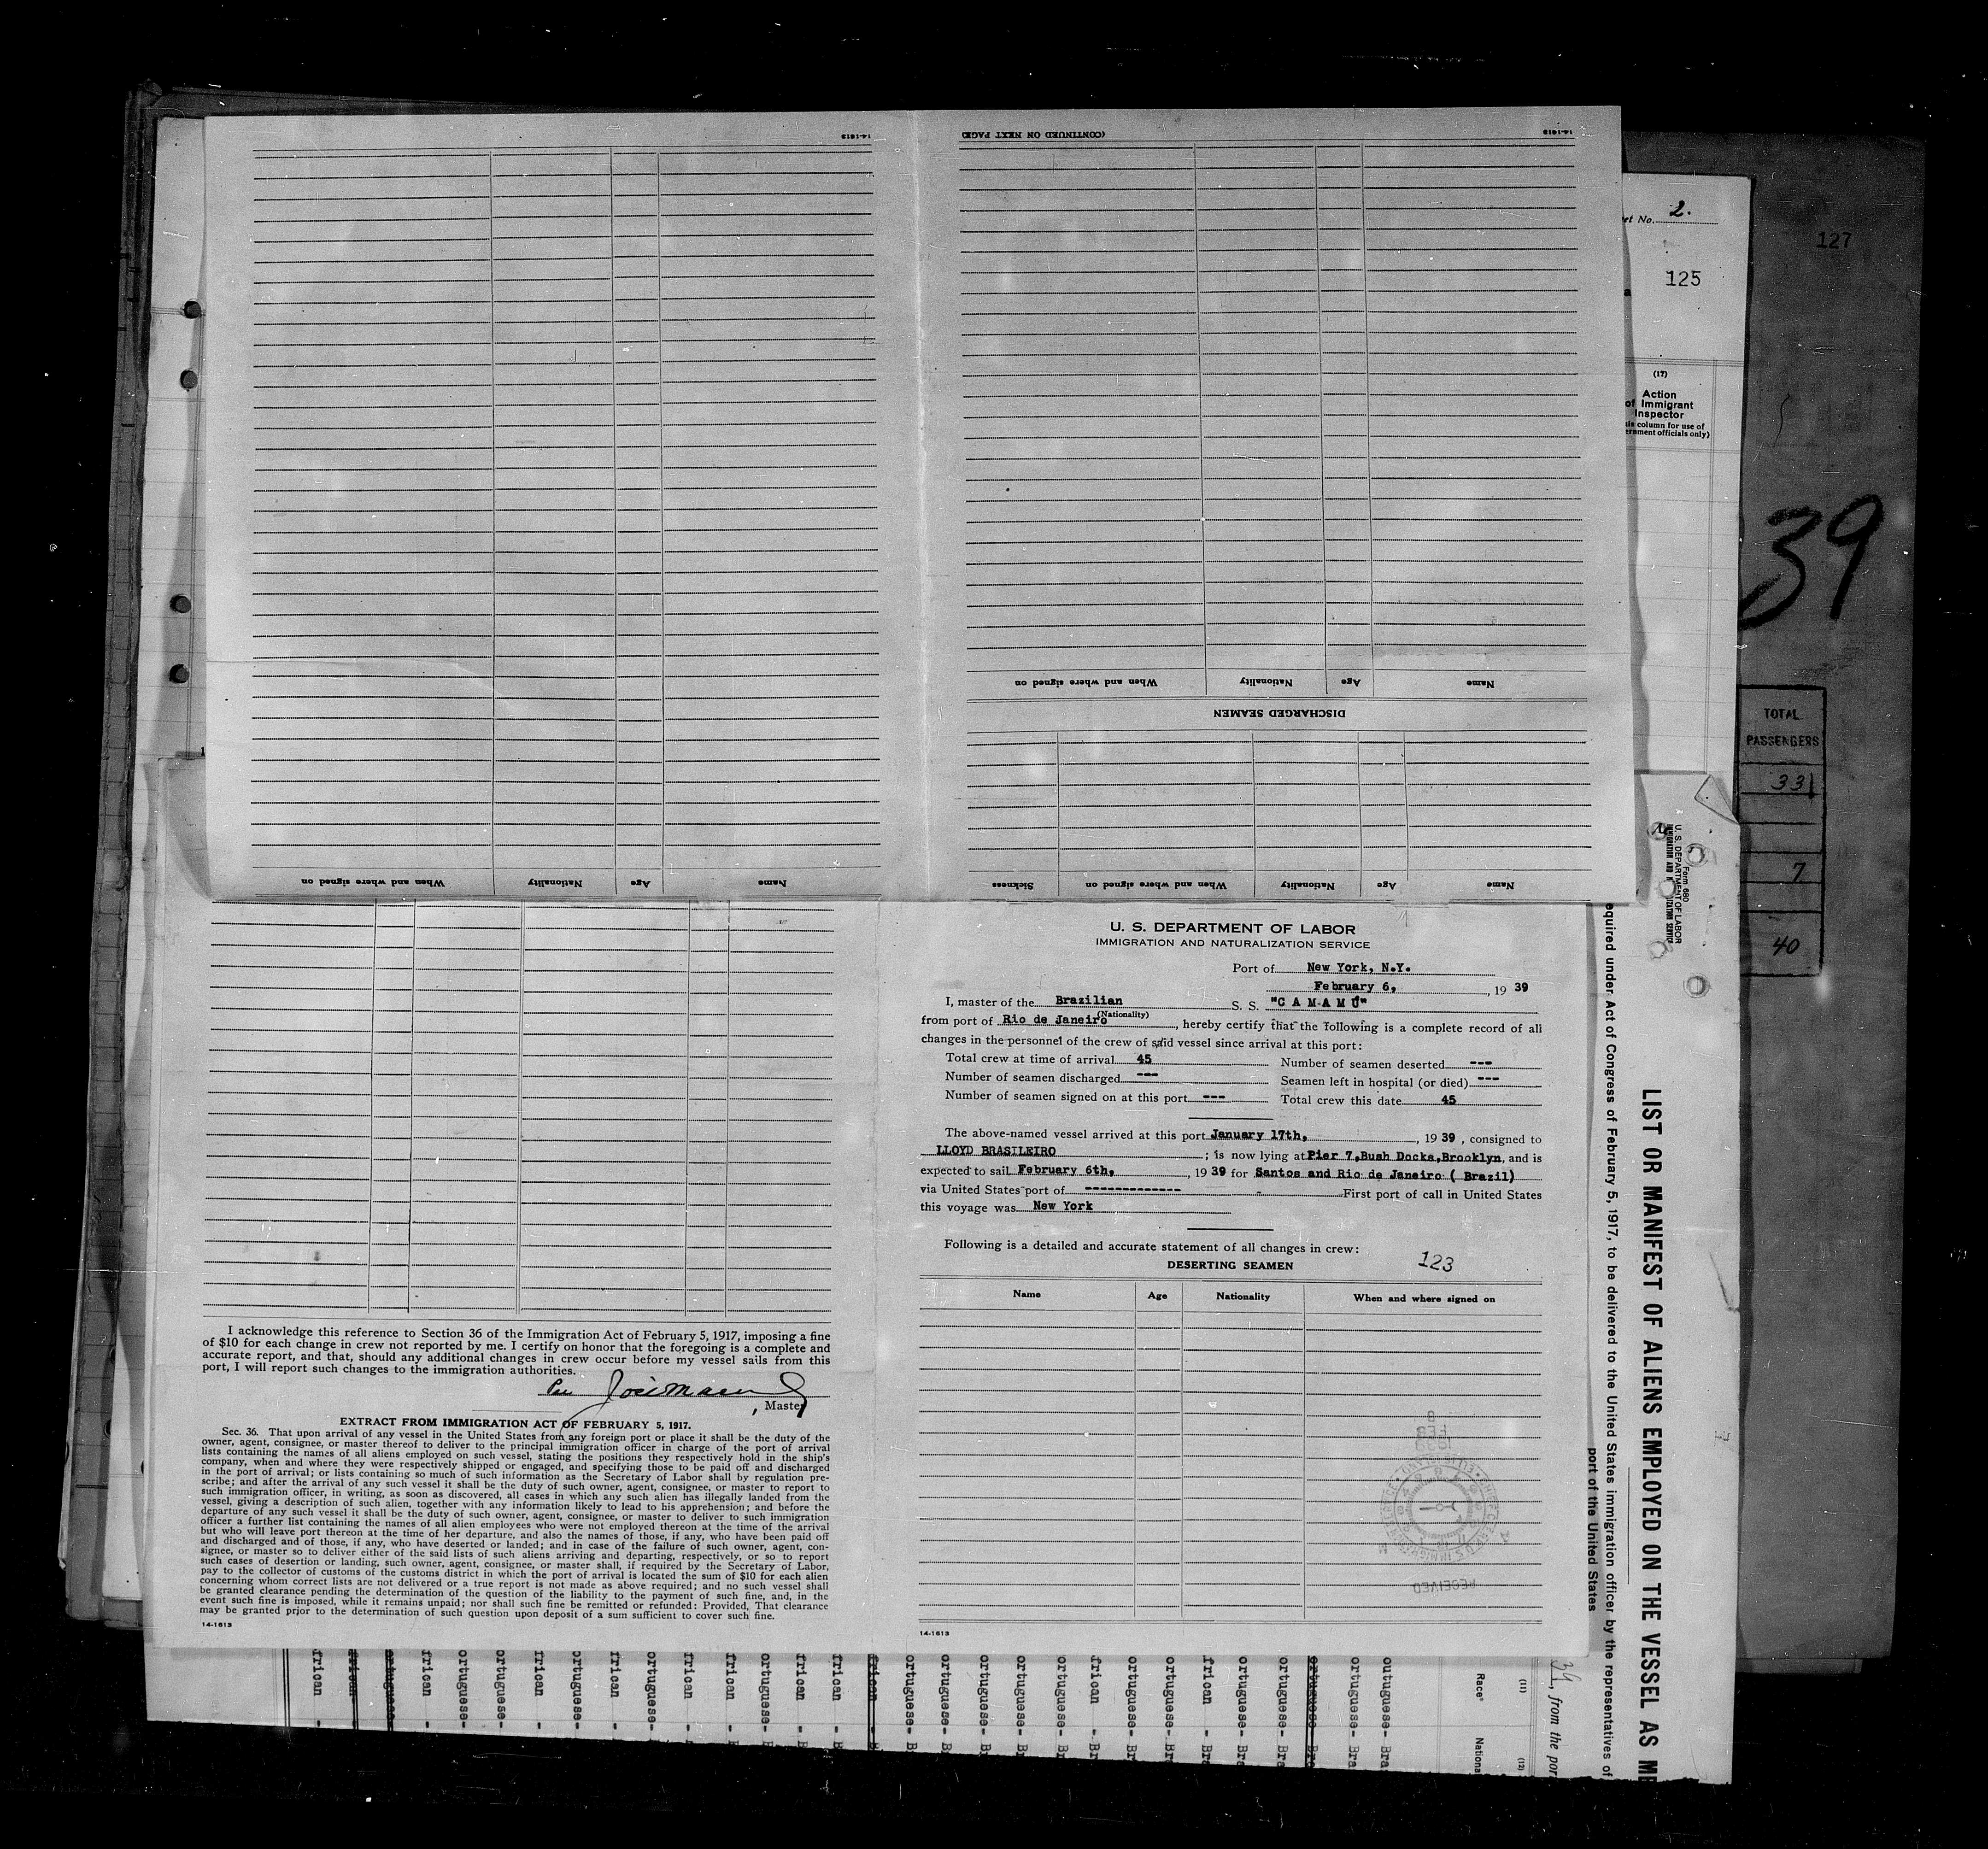 14-1613
(CONTINUED ON NEXT PAGE)
14-1613
When and where signed on
Nationality
Age
Name
DISCHARGED SEAMEN
When and where signed on
Nationality
Age
Name
Sickness
When and where signed on
Nationality
Age
Name
et No. 2.
125
127
(17)
Action
of Immigrant
Inspector
ernment officials only)
39
TOTAL
PASSENGERS
33
7
40
Form 680
U. S. DEPARTMENT OF LABOR
U. S. DEPARTMENT OF LABOR
IMMIGRATION AND NATURALIZATION SERVICE
Port of New York, N.Y.
February 6, , 19 39
I, master of the Brazilian S. S. "C A M A M Ú"
(Nationality)
from port of Rio de Janeiro , hereby certify that the following is a complete record of all
changes in the personnel of the crew of said vessel since arrival at this port:
Total crew at time of arrival 45 Number of seamen deserted ---
Number of seamen discharged --- Seamen left in hospital (or died) ---
Number of seamen signed on at this port --- Total crew this date 45
The above-named vessel arrived at this port January 17th, , 19 39 , consigned to
LLOYD BRASILEIRO ; is now lying at Pier 7,Bush Docks,Brooklyn, and is
expected to sail February 6th, , 19 39 for Santos and Rio de Janeiro ( Brazil)
via United States port of ------------- First port of call in United States
this voyage was New York
Following is a detailed and accurate statement of all changes in crew:
123
DESERTING SEAMEN
Name Age Nationality When and where signed on
RECEIVED
14-1613
I acknowledge this reference to Section 36 of the Immigration Act of February 5, 1917, imposing a fine
of $10 for each change in crew not reported by me. I certify on honor that the foregoing is a complete and
accurate report, and that, should any additional changes in crew occur before my vessel sails from this
port, I will report such changes to the immigration authorities.
, Master
EXTRACT FROM IMMIGRATION ACT OF FEBRUARY 5, 1917.
Sec. 36. That upon arrival of any vessel in the United States from any foreign port or place it shall be the duty of the
owner, agent, consignee, or master thereof to deliver to the principal immigration officer in charge of the port of arrival
lists containing the names of all aliens employed on such vessel, stating the positions they respectively hold in the ship's
company, when and where they were respectively shipped or engaged, and specifying those to be paid off and discharged
in the port of arrival; or lists containing so much of such information as the Secretary of Labor shall by regulation pre-
scribe; and after the arrival of any such vessel it shall be the duty of such owner, agent, consignee, or master to report to
such immigration officer, in writing, as soon as discovered, all cases in which any such alien has illegally landed from the
vessel, giving a description of such alien, together with any information likely to lead to his apprehension; and before the
departure of any such vessel it shall be the duty of such owner, agent, consignee, or master to deliver to such immigration
officer a further list containing the names of all alien employees who were not employed thereon at the time of the arrival
but who will leave port thereon at the time of her departure, and also the names of those, if any, who have been paid off
and discharged and of those, if any, who have deserted or landed; and in case of the failure of such owner, agent, con-
signee, or master so to deliver either of the said lists of such aliens arriving and departing, respectively, or so to report
such cases of desertion or landing, such owner, agent, consignee, or master shall, if required by the Secretary of Labor,
pay to the collector of customs of the customs district in which the port of arrival is located the sum of $10 for each alien
concerning whom correct lists are not delivered or a true report is not made as above required; and no such vessel shall
be granted clearance pending the determination of the question of the liability to the payment of such fine, and, in the
event such fine is imposed, while it remains unpaid; nor shall such fine be remitted or refunded: Provided, That clearance
may be granted prior to the determination of such question upon deposit of a sum sufficient to cover such fine.
14-1613
LIST OR MANIFEST OF ALIENS EMPLOYED ON THE VESSEL AS ME
equired under Act of Congress of February 5, 1917, to be delivered to the United States immigration officer by the representatives of
port of the United States
39, from the por
(11)
(12)
Race
Nationa
outuguese- Bra
ortuguese- Bra
ortuguese- Bra
ortuguese- Bra
ortuguese- Bra
frican - Bra
ortuguese- Bra
ortuguese- Bra
frican - Bra
ortuguese- Br
ortuguese- Br
ortuguese- Br
ortuguese- B
ortuguese- B
frican - B
frican - B
frican - B
ortuguese- B
frican -
frican -
ortuguese-
frican -
ortuguese-
frican -
ortuguese-
ortuguese-
frican -
ortuguese-
frican -
frican -